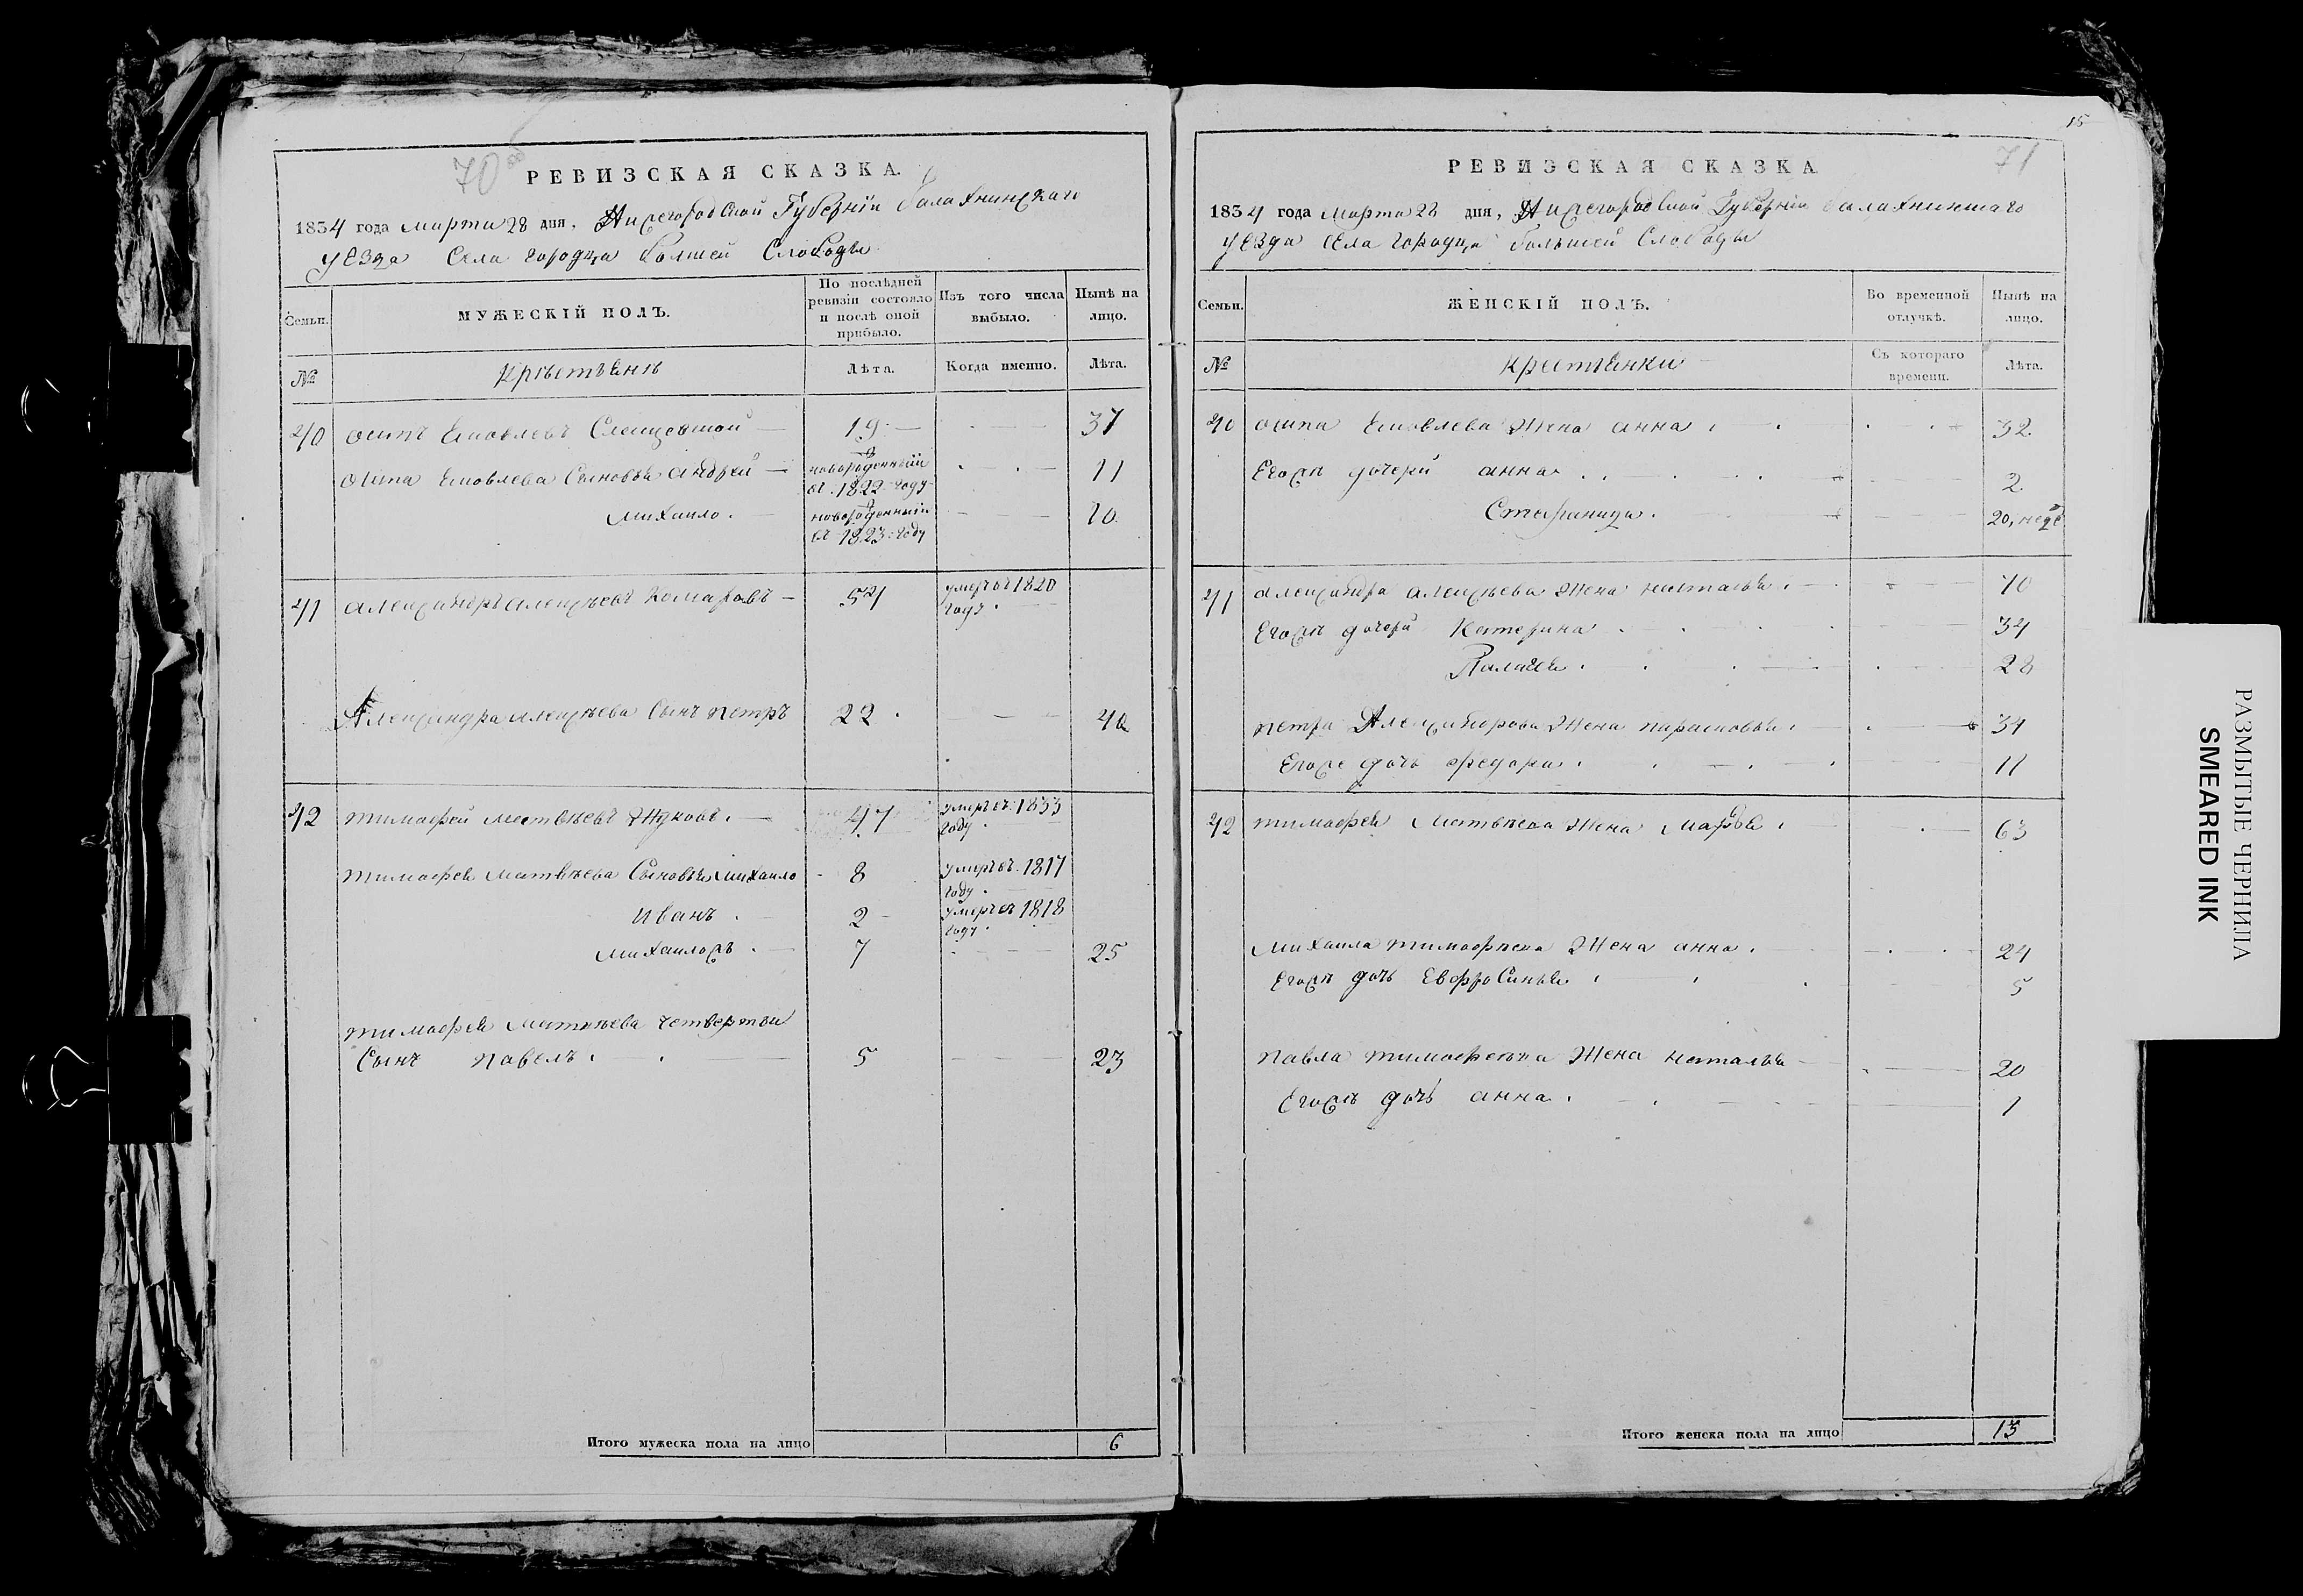 70
РЕВИЗСКАЯ СКАЗКА.
1834 года марта 28 дня, Нижегородской Губернiи балахнинскаго
уезда Села городца Болшей Слободы
Семьи.
МУЖЕСКIЙ ПОЛЪ.
По послѣдней ревизiи состояло и послѣ оной прибыло.
Изъ того числа выбыло.
Нынѣ на лицо.
№
Лѣта.
Когда именно.
Лѣта.
40 осипъ Яковлевъ 19 37
осипа Яковлева Сыновья андрей новорожденный въ 1822 году 11
михаило новорожденный въ 1823 году 10
41 александръ алексѣевъ Комаровъ 54 умеръ въ 1820 году
Александра алексѣева Сынъ петръ 22 40
42 тимофей матвѣевъ Жуковъ 47 умеръ въ 1833 году
тимофея матвѣева Сыновья михаило 8 умеръ въ 1817 году
иванъ 2 умеръ въ 1818 году
михаило 7 25
тимофея матвѣева четвертый
Сынъ павелъ 5 23
Итого мужеска пола на лицо 6
15
71
РЕВИЗСКАЯ СКАЗКА
1834 года марта 28 дня, Нижегородской Губернiи балахнинскаго
уезда села городца большей Слободы
Семьи.
ЖЕНСКIЙ ПОЛЪ.
Во временной отлучкѣ.
Нынѣ на лицо.
№
крестьянки
Съ котораго времени.
Лѣта.
40 осипа Яковлева Жена анна 32
Егожъ дочери анна 2
20, неде
41 александра алексѣева Жена наталья 70
Егожъ дочери Катерина 34
Палагея 28
петра Александрова Жена парасковья 34
Егоже дочь федора 11
42 тимофея матвѣева Жена марья 63
михаила тимофеева Жена анна 24
Егожъ дочь Евфросинья 5
павла тимофеева Жена наталья 20
Егожъ дочь анна 1
Итого женска пола на лицо 13
РАЗМЫТЫЕ ЧЕРНИЛА
SMEARED INK